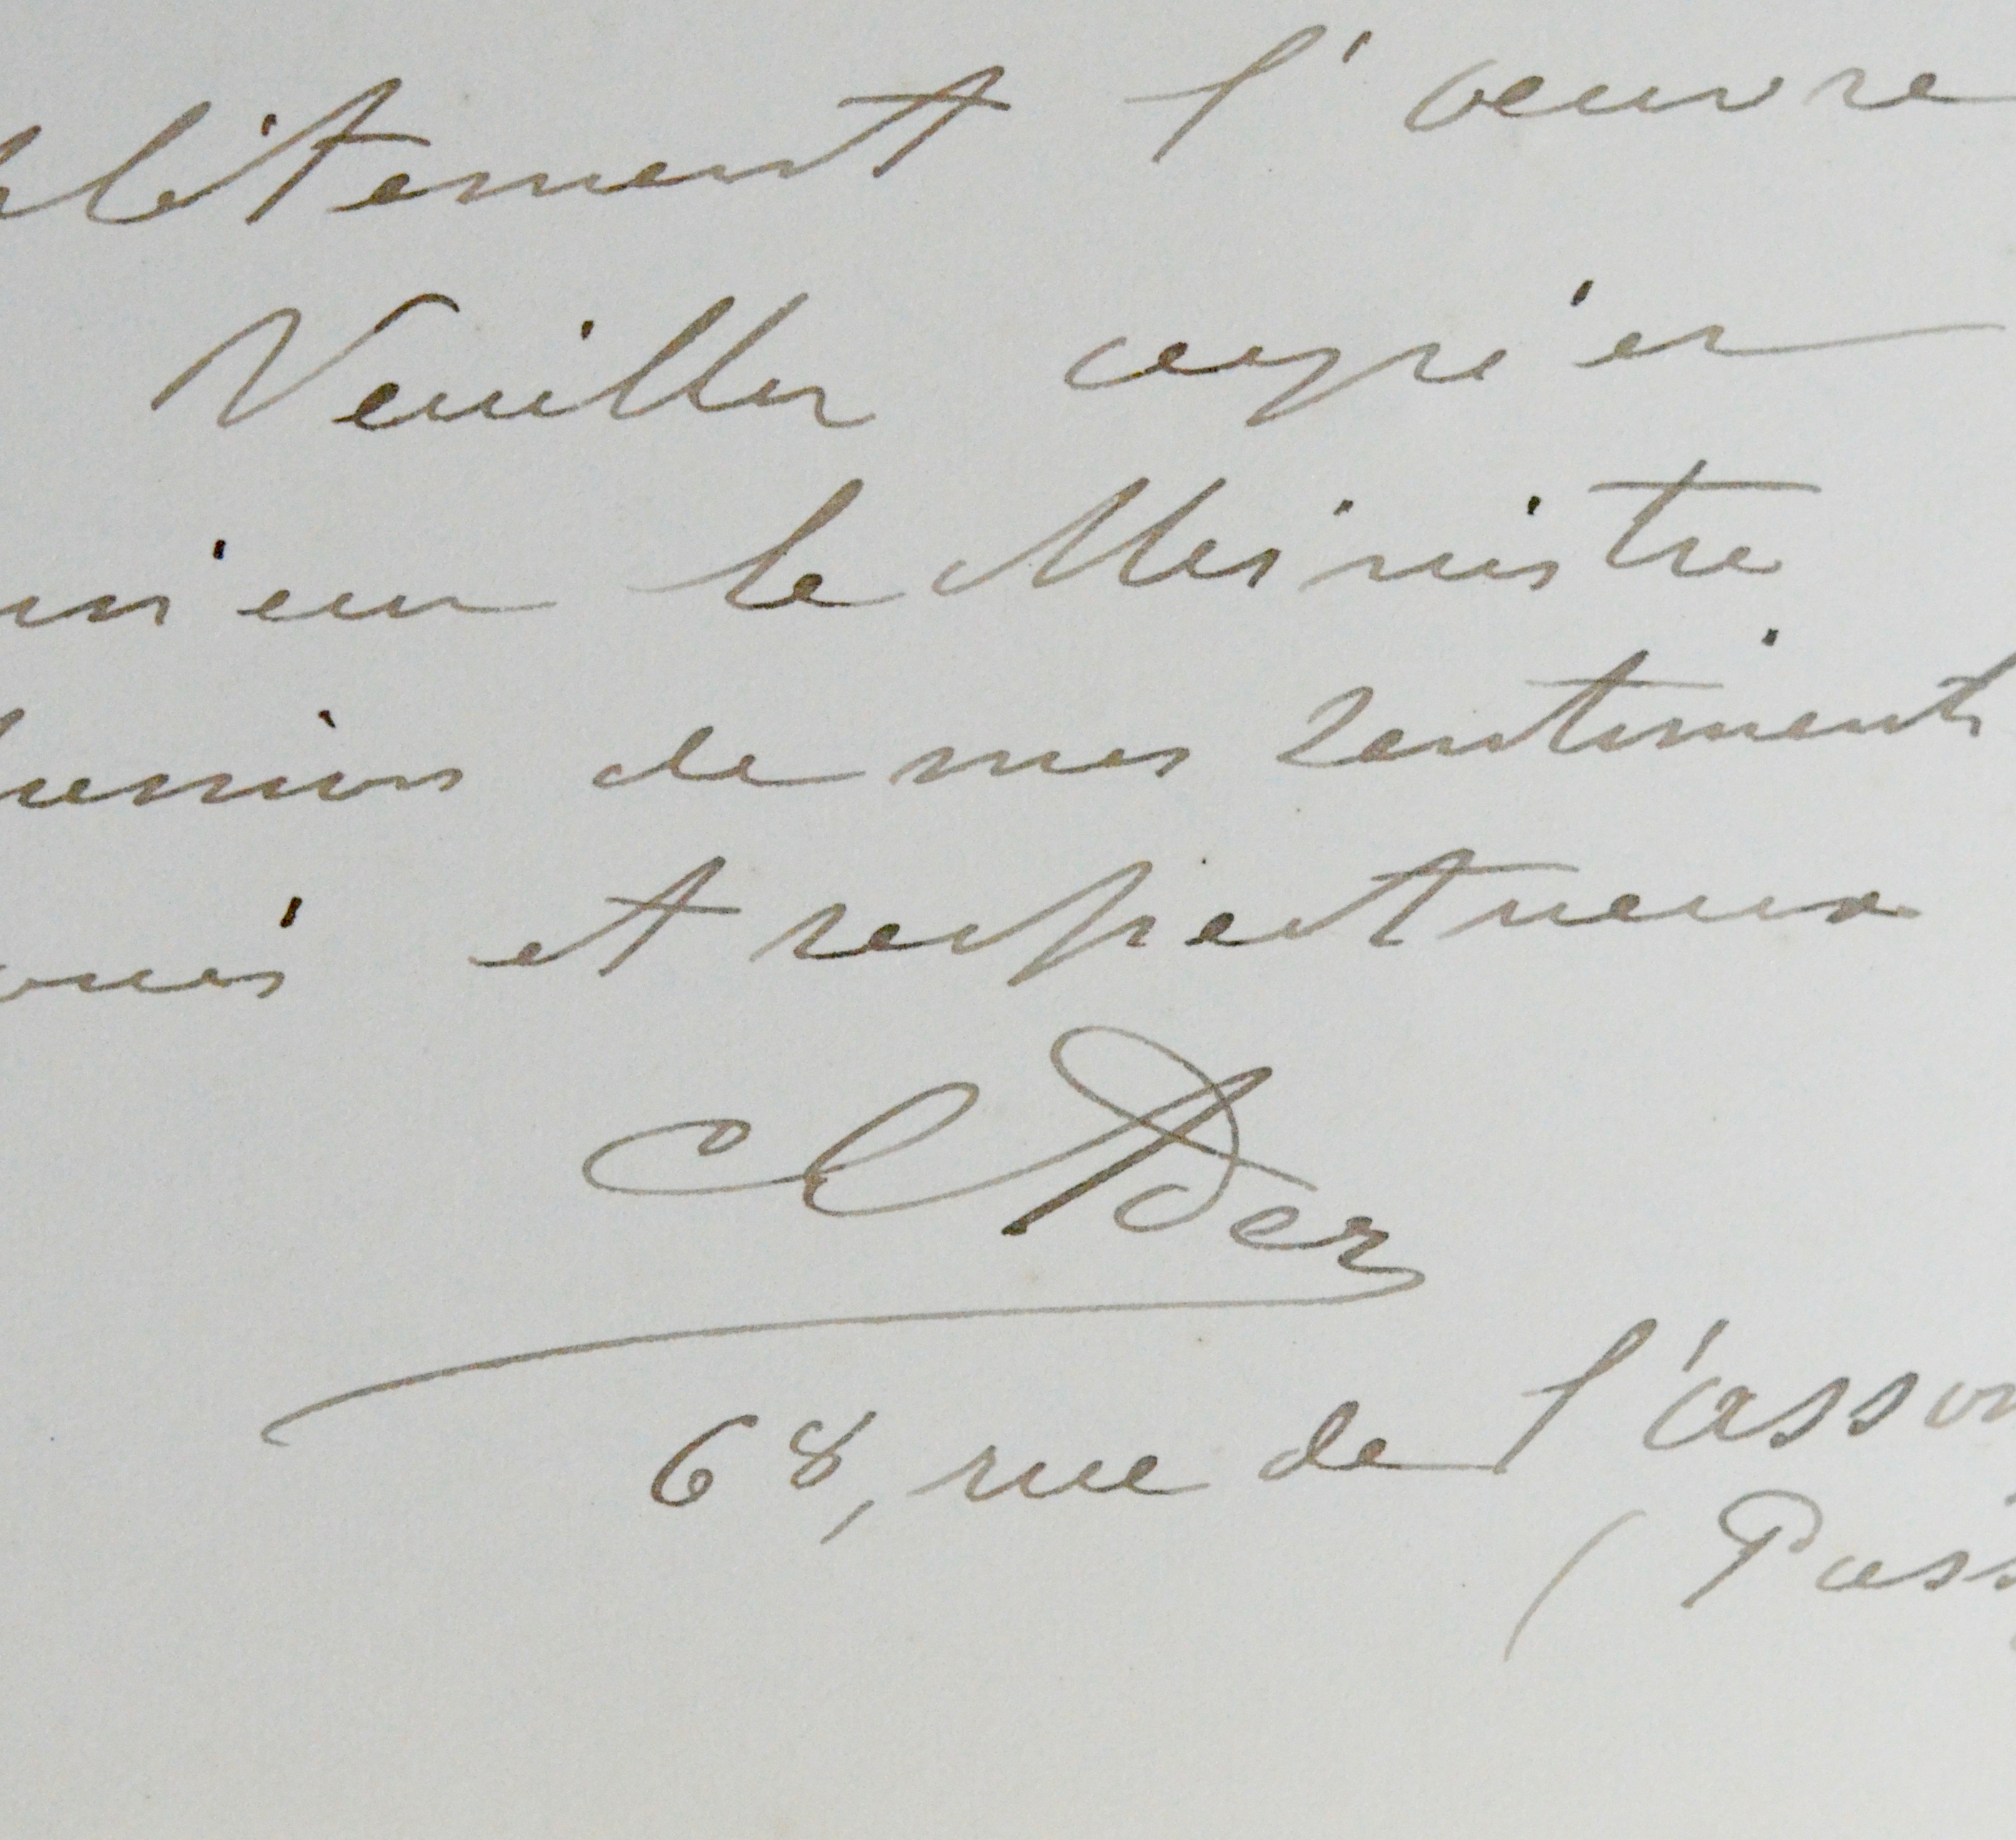 plètement l'œuvre
Veuillez agréer
nsieur le Ministre
pression de mes sentiments
oués et respectueux
C Ader
68, rue de l'asso
( Passy